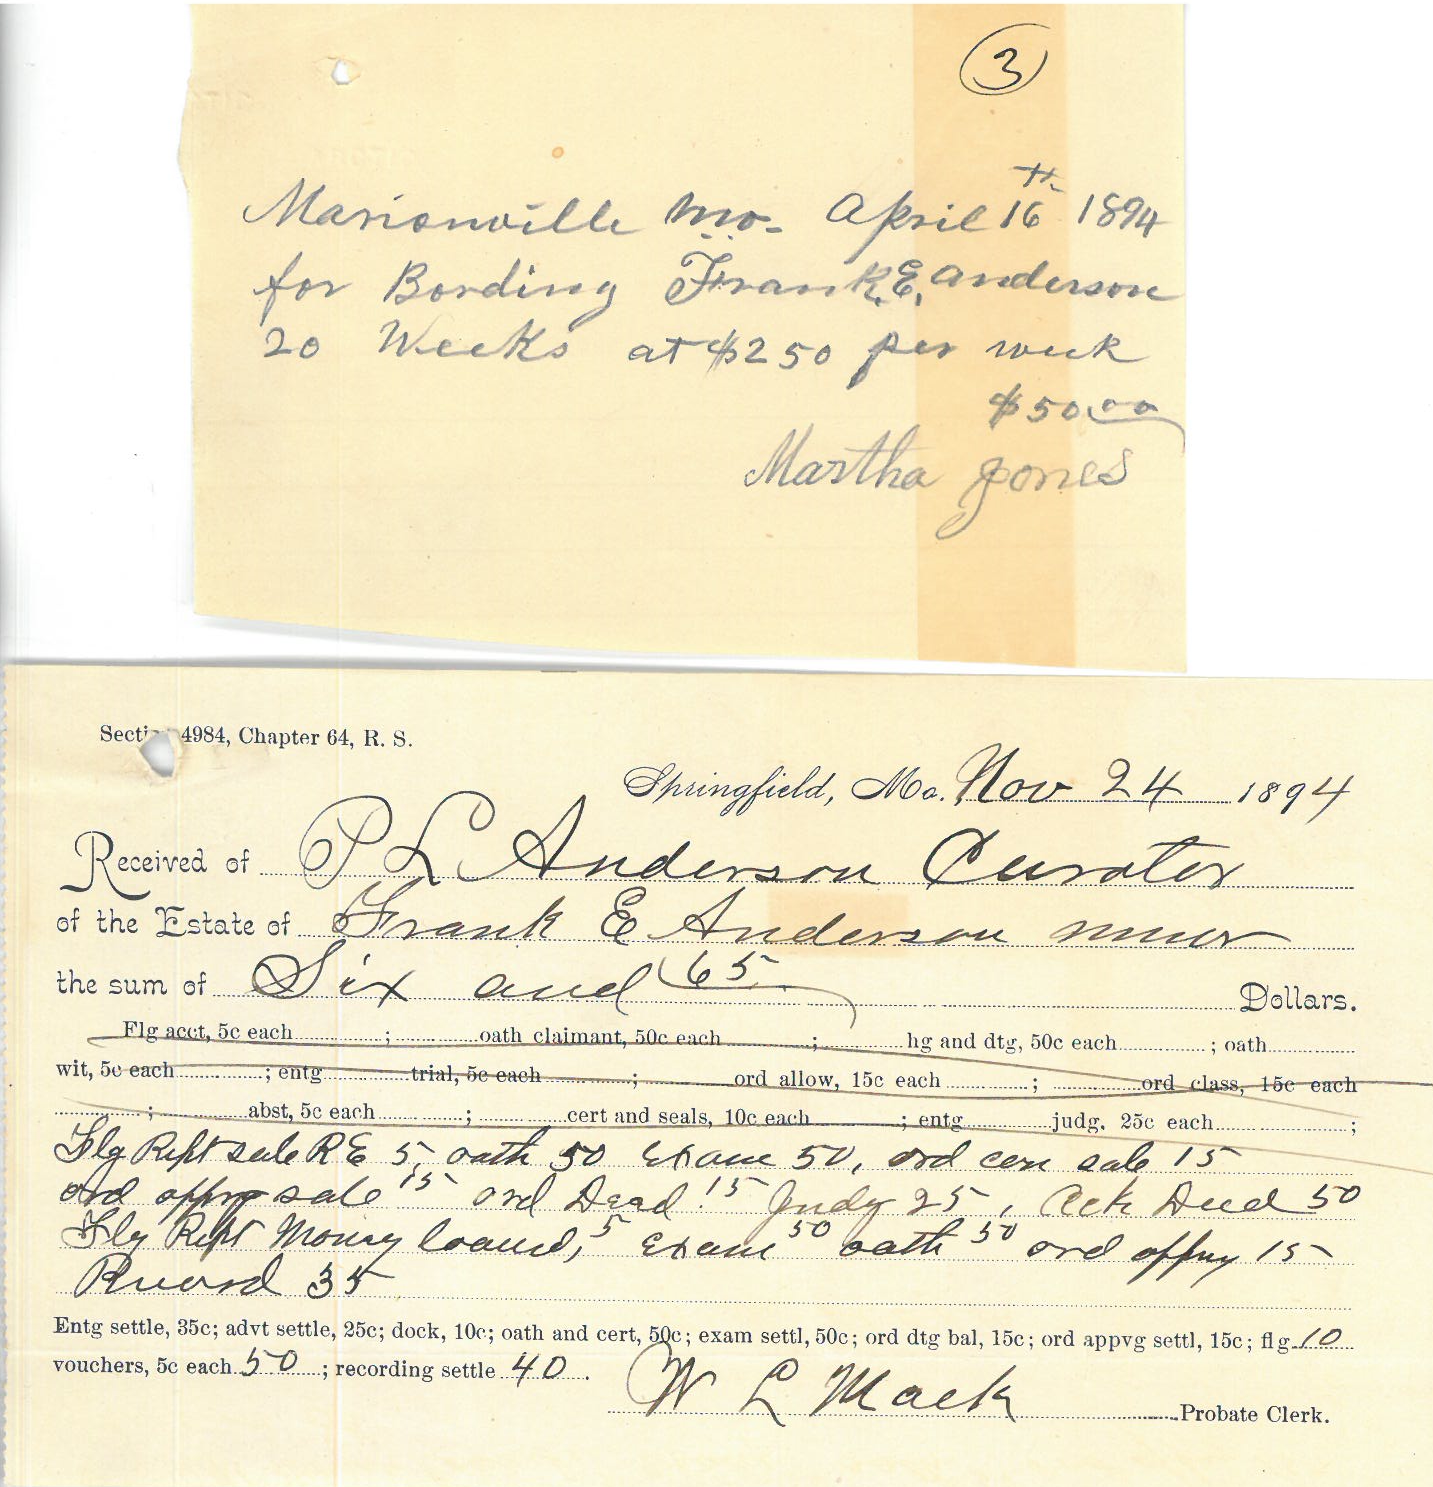 3
Marionville Mo. April 16th 1894
for Bording Frank, E, Anderson
20 Weeks at $2 50 per week
$50.00
Martha Jones
Section 4984, Chapter 64, R. S.
Springfield, Mo. Nov 24 1894
Received of P L Anderson Curator
of the Estate of Frank E Anderson minor
the sum of Six and 65 Dollars.
Flg acct, 5c each ; oath claimant, 50c each ; hg and dtg, 50c each ; oath
wit, 5c each ; entg trial, 5c each ; ord allow, 15c each ; ord class, 15c each
; abst, 5c each ; cert and seals, 10c each ; entg judg, 25c each ;
Flg Rept sale R E 5, oath 50 Exam 50, ord con sale 15
ord apprvg sale 15 ord Deed 15 Judg 25, Ack Deed 50
Flg Rept Money loaned, 5 Exam 50 oath 50 ord apprvg 15
Record 35
Entg settle, 35c; advt settle, 25c; dock, 10c; oath and cert, 50c; exam settl, 50c; ord dtg bal, 15c; ord appvg settl, 15c; flg 10
vouchers, 5c each 50 ; recording settle 40 .
W L Mack Probate Clerk.